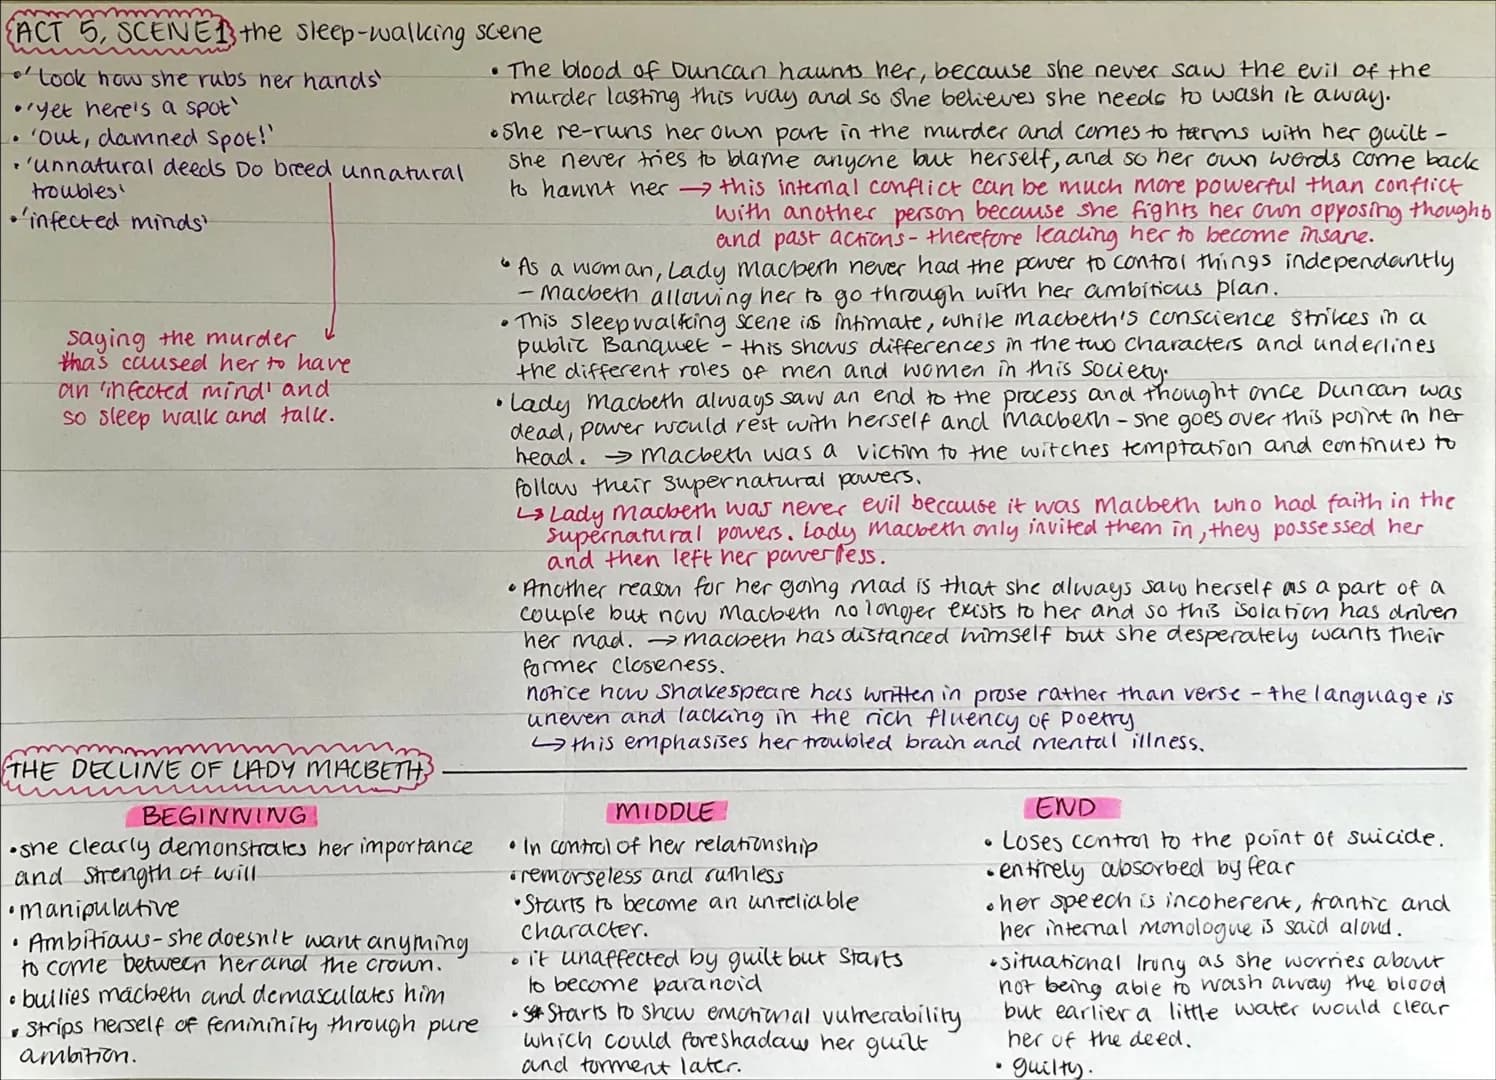 ACT 5, SCENE 1 the sleep-walking scene
•'Look how she rubs her hands'
•'yet here's a spot'
• 'Out, damned spot!'
•'unnatural deeds Do breed unnatural
troubles'
•'infected minds'
saying the murder
has caused her to have
an 'infected mind' and
so sleep walk and talk.
• The blood of Duncan haunts her, because she never saw the evil of the
murder lasting this way and so she believes she needs to wash it away.
•She re-runs her own part in the murder and comes to terms with her guilt -
she never tries to blame anyone but herself, and so her own words come back
to haunt her → this internal conflict can be much more powerful than conflict
with another person because she fights her own opposing thought
and past actions - therefore leading her to become insane.
• As a woman, Lady Macbeth never had the power to control things independantly
- Macbeth allowing her to go through with her ambitious plan.
• This sleepwalking scene is intimate, while Macbeth's conscience strikes in a
public Banquet - this shows differences in the two characters and underlines
the different roles of men and women in this society.
• Lady Macbeth always saw an end to the process and thought once Duncan was
dead, power would rest with herself and Macbeth - she goes over this point in her
head. → Macbeth was a victim to the witches temptation and continues to
follow their supernatural powers.
↳ Lady Macbeth was never evil because it was Macbeth who had faith in the
supernatural powers. Lady Macbeth only invited them in, they possessed her
and then left her powerless.
• Another reason for her going mad is that she always saw herself as a part of a
couple but now Macbeth no longer exists to her and so this isolation has driven
her mad. → Macbeth has distanced himself but she desperately wants their
former closeness.
notice how Shakespeare has written in prose rather than verse - the language is
uneven and lacking in the rich fluency of Poetry
↳ this emphasises her troubled brain and mental illness.
THE DECLINE OF LADY MACBETH
BEGINNING
•she clearly demonstrates her importance
and strength of will
•manipulative
• Ambitious - she doesn't want anything
to come between her and the crown.
• bullies macbeth and demasculates him
• strips herself of femininity through pure
ambition.
MIDDLE
• In control of her relationship
•remorseless and ruthless
•Starts to become an unreliable
character.
• it unaffected by guilt but starts
to become paranoid
• Starts to show emotional vulnerability
which could foreshadow her guilt
and torment later.
END
• Loses control to the point of suicide.
•entirely absorbed by fear
•her speech is incoherent, frantic and
her internal monologue is said aloud.
•situational Irony as she worries about
not being able to wash away the blood
but earlier a little water would clear
her of the deed.
• guilty.